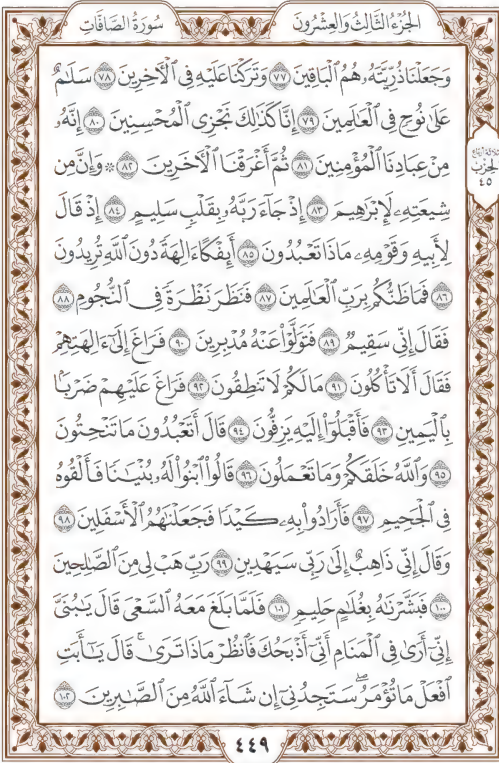 الجُزْءُ الثَّالِثُ وَالعِشْرُونَ
سُورَةُ الصَّافَّاتِ
وَجَعَلْنَا ذُرِّيَّتَهُۥ هُمُ ٱلْبَاقِينَ ٧٧ وَتَرَكْنَا عَلَيْهِ فِى ٱلْءَاخِرِينَ ٧٨ سَلَٰمٌ
عَلَىٰ نُوحٍ فِى ٱلْعَٰلَمِينَ ٧٩ إِنَّا كَذَٰلِكَ نَجْزِى ٱلْمُحْسِنِينَ ٨٠ إِنَّهُۥ
مِنْ عِبَادِنَا ٱلْمُؤْمِنِينَ ٨١ ثُمَّ أَغْرَقْنَا ٱلْءَاخَرِينَ ٨٢ ۞ وَإِنَّ مِن
شِيعَتِهِۦ لَإِبْرَٰهِيمَ ٨٣ إِذْ جَآءَ رَبَّهُۥ بِقَلْبٍ سَلِيمٍ ٨٤ إِذْ قَالَ
لِأَبِيهِ وَقَوْمِهِۦ مَاذَا تَعْبُدُونَ ٨٥ أَئِفْكًا ءَالِهَةً دُونَ ٱللَّهِ تُرِيدُونَ
٨٦ فَمَا ظَنُّكُم بِرَبِّ ٱلْعَٰلَمِينَ ٨٧ فَنَظَرَ نَظْرَةً فِى ٱلنُّجُومِ ٨٨
فَقَالَ إِنِّى سَقِيمٌ ٨٩ فَتَوَلَّوْا۟ عَنْهُ مُدْبِرِينَ ٩٠ فَرَاغَ إِلَىٰٓ ءَالِهَتِهِمْ
فَقَالَ أَلَا تَأْكُلُونَ ٩١ مَا لَكُمْ لَا تَنطِقُونَ ٩٢ فَرَاغَ عَلَيْهِمْ ضَرْبًۢا
بِٱلْيَمِينِ ٩٣ فَأَقْبَلُوٓا۟ إِلَيْهِ يَزِفُّونَ ٩٤ قَالَ أَتَعْبُدُونَ مَا تَنْحِتُونَ
٩٥ وَٱللَّهُ خَلَقَكُمْ وَمَا تَعْمَلُونَ ٩٦ قَالُوا۟ ٱبْنُوا۟ لَهُۥ بُنْيَٰنًا فَأَلْقُوهُ
فِى ٱلْجَحِيمِ ٩٧ فَأَرَادُوا۟ بِهِۦ كَيْدًا فَجَعَلْنَٰهُمُ ٱلْأَسْفَلِينَ ٩٨
وَقَالَ إِنِّى ذَاهِبٌ إِلَىٰ رَبِّى سَيَهْدِينِ ٩٩ رَبِّ هَبْ لِى مِنَ ٱلصَّٰلِحِينَ
١٠٠ فَبَشَّرْنَٰهُ بِغُلَٰمٍ حَلِيمٍ ١٠١ فَلَمَّا بَلَغَ مَعَهُ ٱلسَّعْىَ قَالَ يَٰبُنَىَّ
إِنِّىٓ أَرَىٰ فِى ٱلْمَنَامِ أَنِّىٓ أَذْبَحُكَ فَٱنظُرْ مَاذَا تَرَىٰ ۚ قَالَ يَٰٓأَبَتِ
ٱفْعَلْ مَا تُؤْمَرُ ۖ سَتَجِدُنِىٓ إِن شَآءَ ٱللَّهُ مِنَ ٱلصَّٰبِرِينَ ١٠٢
ثلاثة أرباع
الحزب
٤٥
٤٤٩